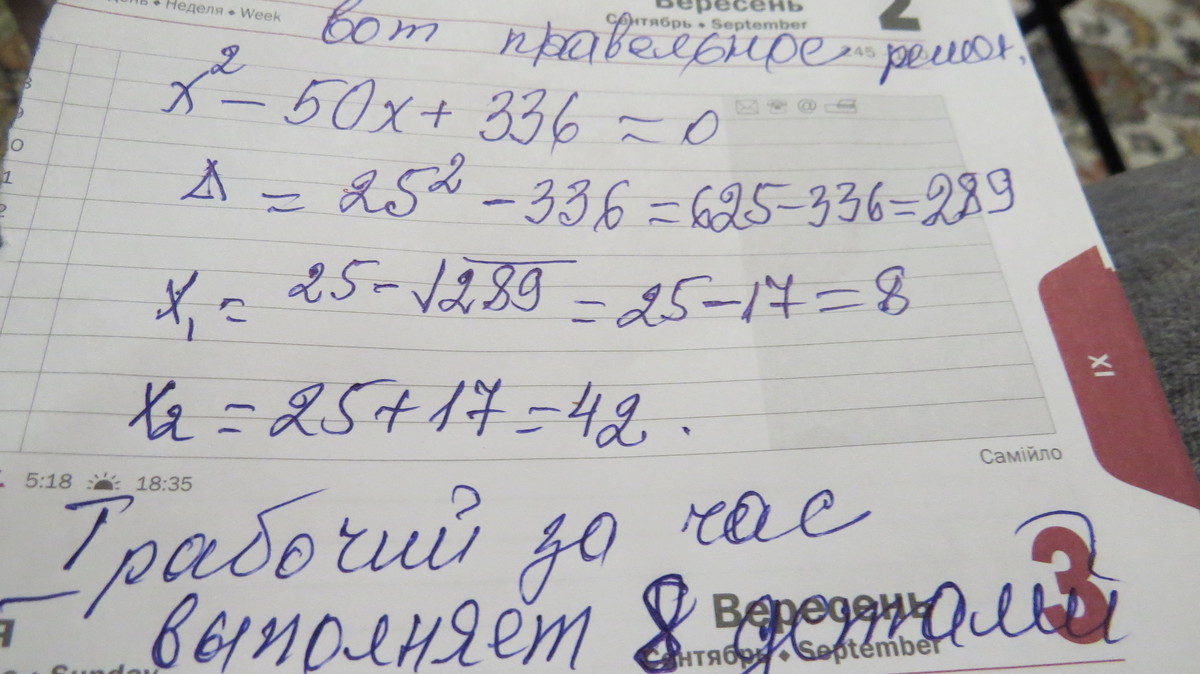 День • Неделя • Week
Вересень
Сентябрь • September
2
вот правельное решен.
245
x² - 50x + 336 = 0
Δ = 25² - 336 = 625 - 336 = 289
x₁ = 25 - √289 = 25 - 17 = 8
x₂ = 25 + 17 = 42.
XI
Самійло
5:18 18:35
I рабочий за час
3
выполняет 8 детали
Вересень
Сентябрь • September
Sunday